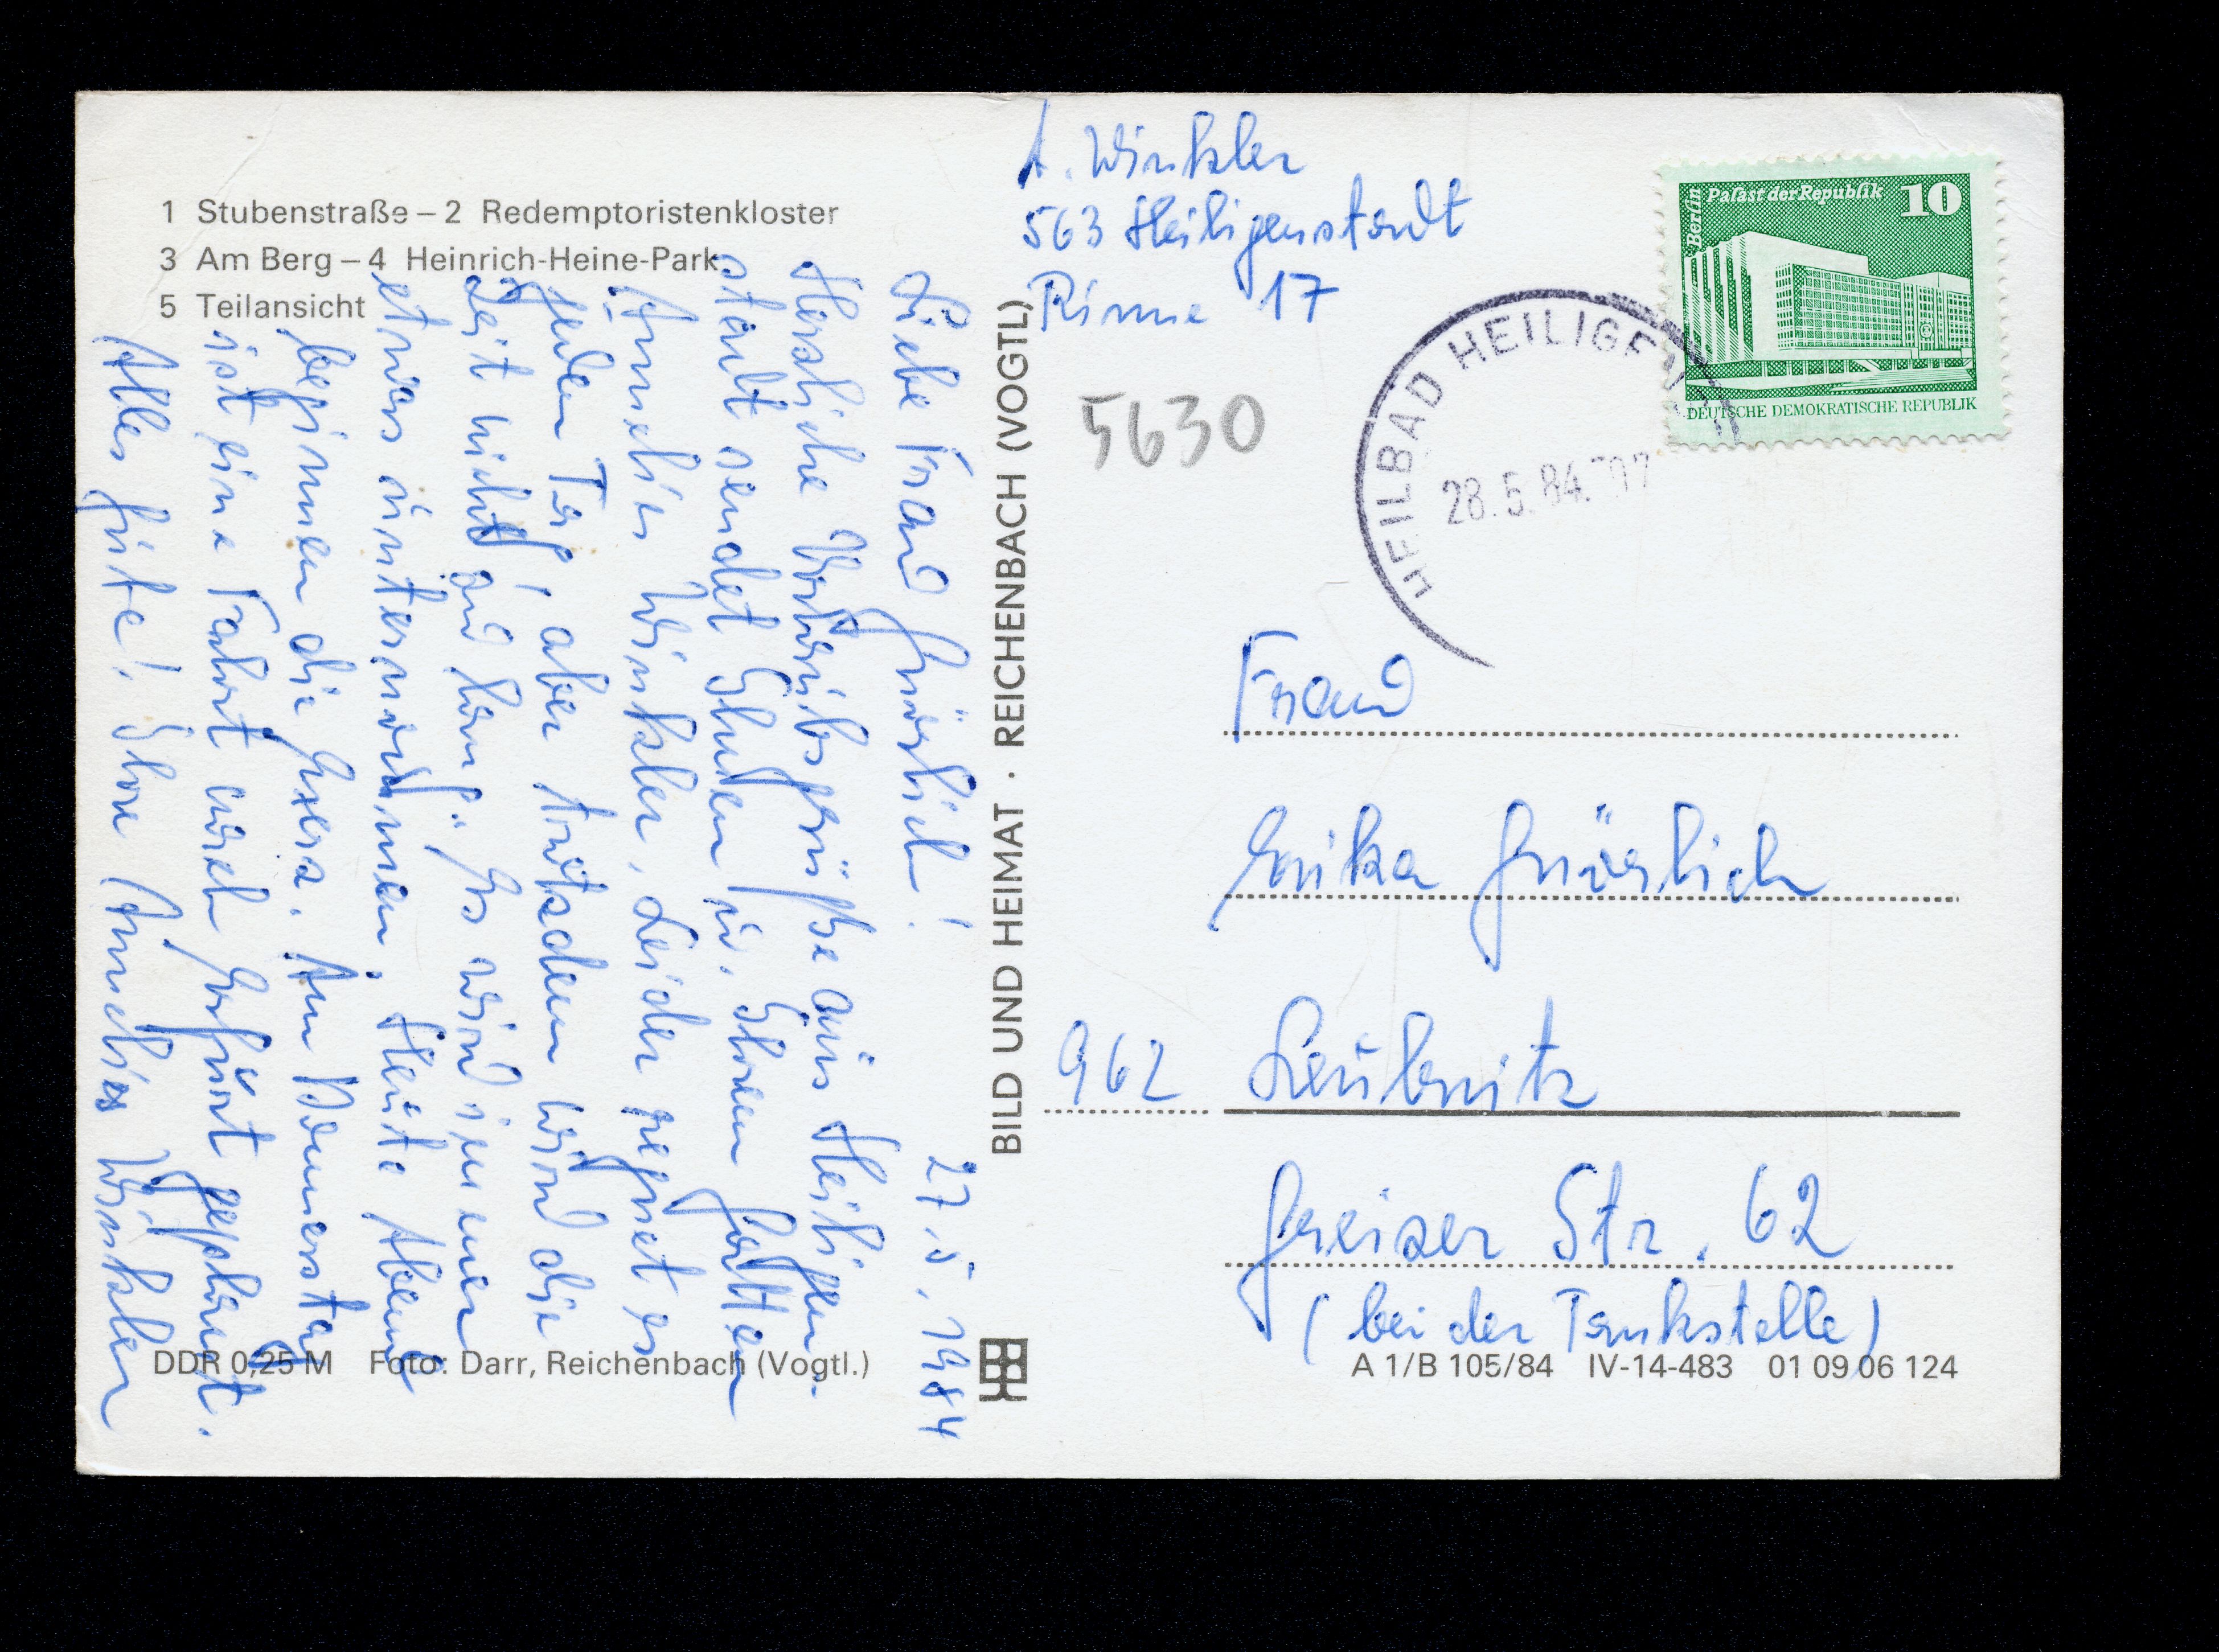 1 Stubenstraße – 2 Redemptoristenkloster
3 Am Berg – 4 Heinrich-Heine-Park
5 Teilansicht
27.5.1984
Liebe Frau Gnörlich!
Herzliche Urlaubsgrüße aus Heiligen-
stadt sendet Ihnen u. Ihrem Gatten
Annelies Winkler. Leider regnet es
jeden Tag, aber trotzdem wird die
Zeit nicht zu lang. Es wird immer
etwas unternommen. Heute Abend
beginnen die Am Donnerstag
ist eine Fahrt nach Erfurt geplant.
Alles Gute! Ihre Annelies Winkler
DDR 0,25 M Foto: Darr, Reichenbach (Vogtl.)
BILD UND HEIMAT · REICHENBACH (VOGTL)
A. Winkler
563 Heiligenstadt
Rinne 17
5630
Berlin Palast der Republik 10
DEUTSCHE DEMOKRATISCHE REPUBLIK
HEILBAD HEILIGEN
28.5.84
Frau
Erika Gnörlich
962 Leubnitz
Greizer Str. 62
(bei der Tankstelle)
A 1/B 105/84 IV-14-483 01 09 06 124